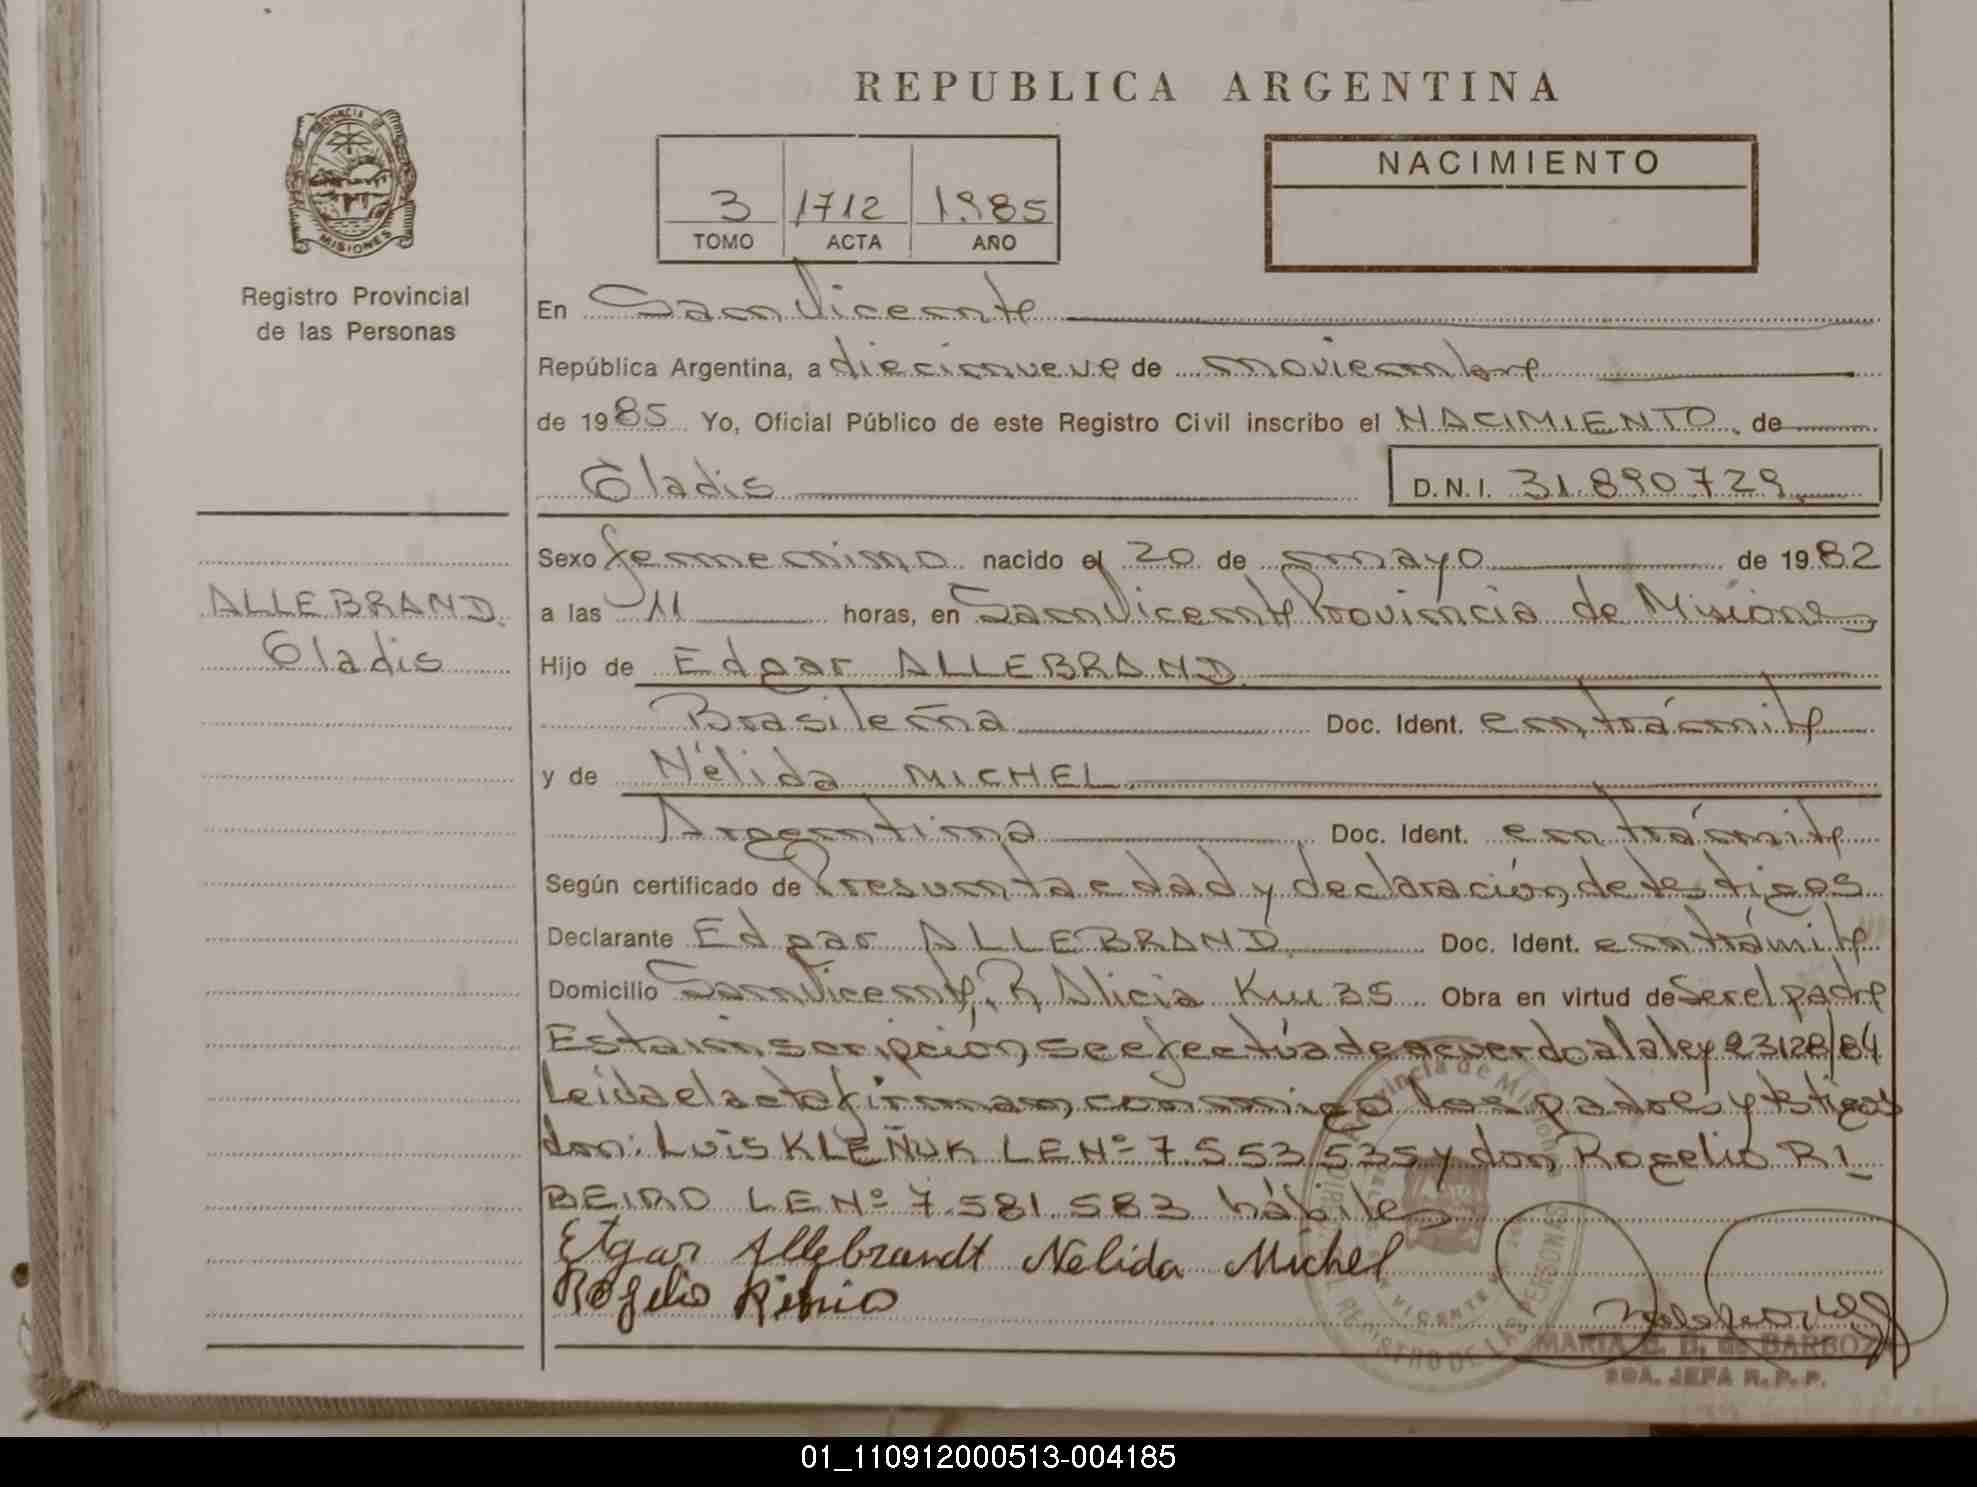 REPUBLICA ARGENTINA
PROVINCIA DE
MISIONES
Registro Provincial
de las Personas
3 1712 1985
TOMO ACTA AÑO
NACIMIENTO
En San Vicente
República Argentina, a diecinueve de noviembre
de 1985 Yo, Oficial Público de este Registro Civil inscribo el NACIMIENTO de
Gladis D.N.I. 31.890.729
ALLEBRAND
Gladis
Sexo femenino nacido el 20 de mayo de 1982
a las 11 horas, en San Vicente Provincia de Misiones
Hijo de Edgar ALLEBRAND
Brasileña Doc. Ident. en trámite
y de Nélida MICHEL
Argentina Doc. Ident. en trámite
Según certificado de Presunta edad y declaración de testigos
Declarante Edgar ALLEBRAND Doc. Ident. en trámite
Domicilio San Vicente, R. Alicia Km 35 Obra en virtud de Ser el padre
Esta inscripción se efectúa de acuerdo a la ley 23128/84
Leída el acta firman conmigo los padres y testigos
don: Luis KLEÑUK LE Nº 7.553.535 y don Rogelio RI_
BEIRO LE Nº 7.581.583 hábiles
Etgar Allebrandt Nelida Michel
Rogelio
MARIA B. de BARBOZA
SDA. JEFA R. P. P.
01_110912000513-004185